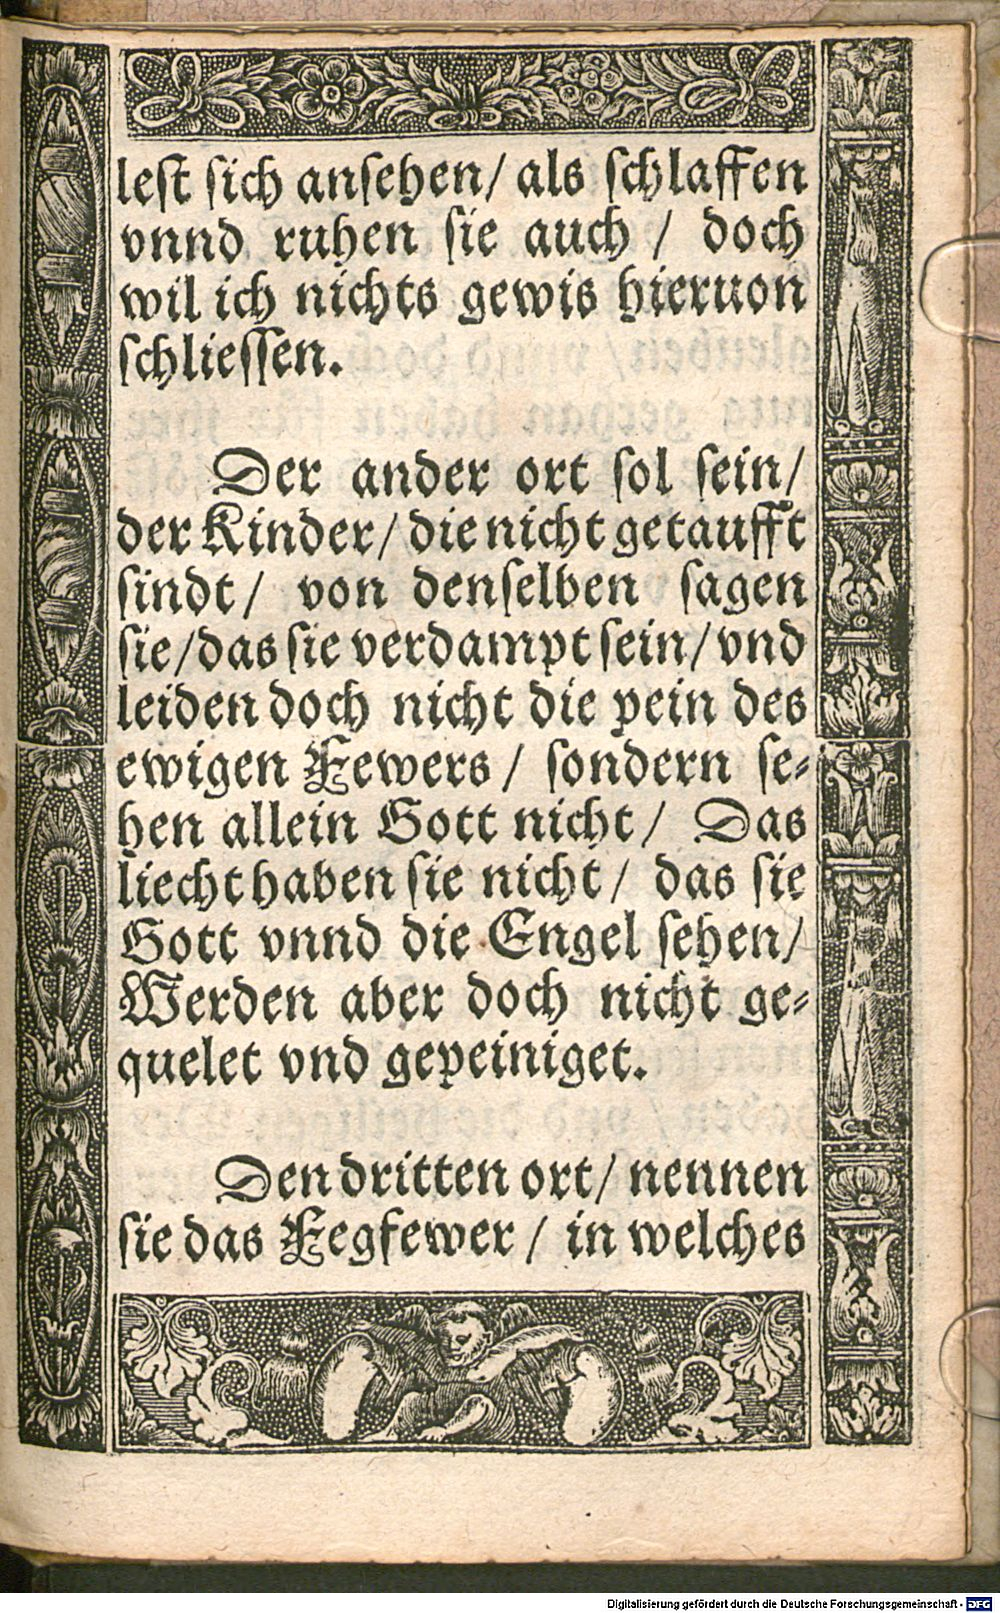 lest sich ansehen/ als schlaffen
vnnd ruhen sie auch / doch
wil ich nichts gewis hieruon
schliessen.
Der ander ort sol sein/
der Kinder/ die nicht getaufft
sindt/ von denselben sagen
sie/ das sie verdampt sein/ vnd
leiden doch nicht die pein des
ewigen Fewers / sondern se-
hen allein Gott nicht/ Das
liecht haben sie nicht/ das sie
Gott vnnd die Engel sehen/
Werden aber doch nicht ge-
quelet vnd gepeiniget.
Den dritten ort/ nennen
sie das Fegfewer / in welches
Digitalisierung gefördert durch die Deutsche Forschungsgemeinschaft - DFG